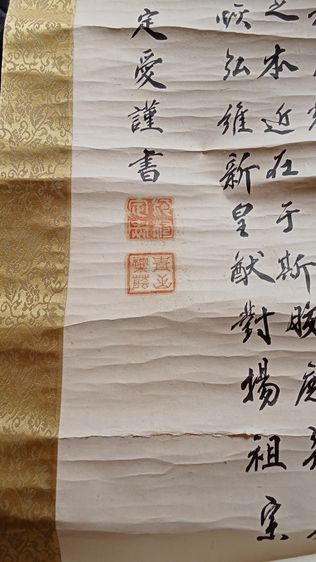 之本近在于斯朕庶
恢弘維新皇猷對揚祖宗
定愛謹書